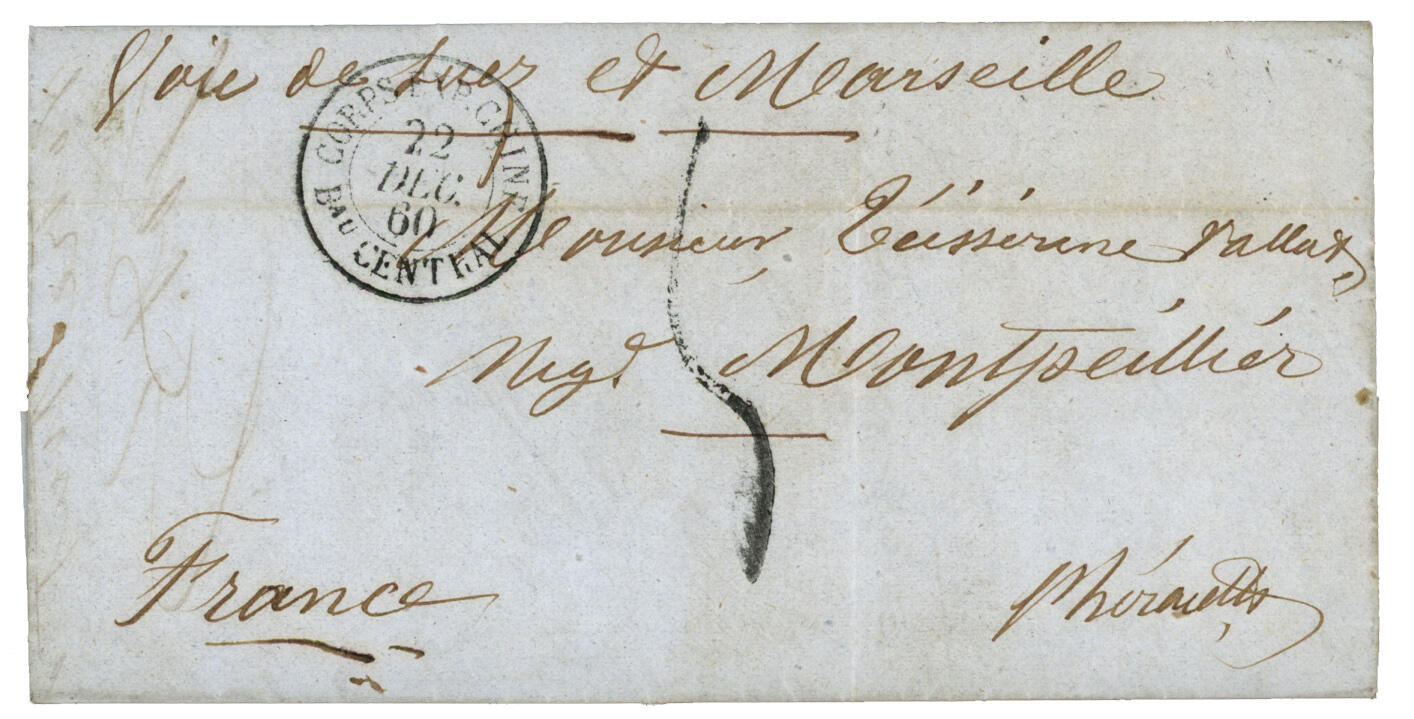 Voie de Suez et Marseille
CORPS EXP. CHINE
22
DEC.
60
BAU CENTRAL
Monsieur Teissereine
Negt Montpeillier
France